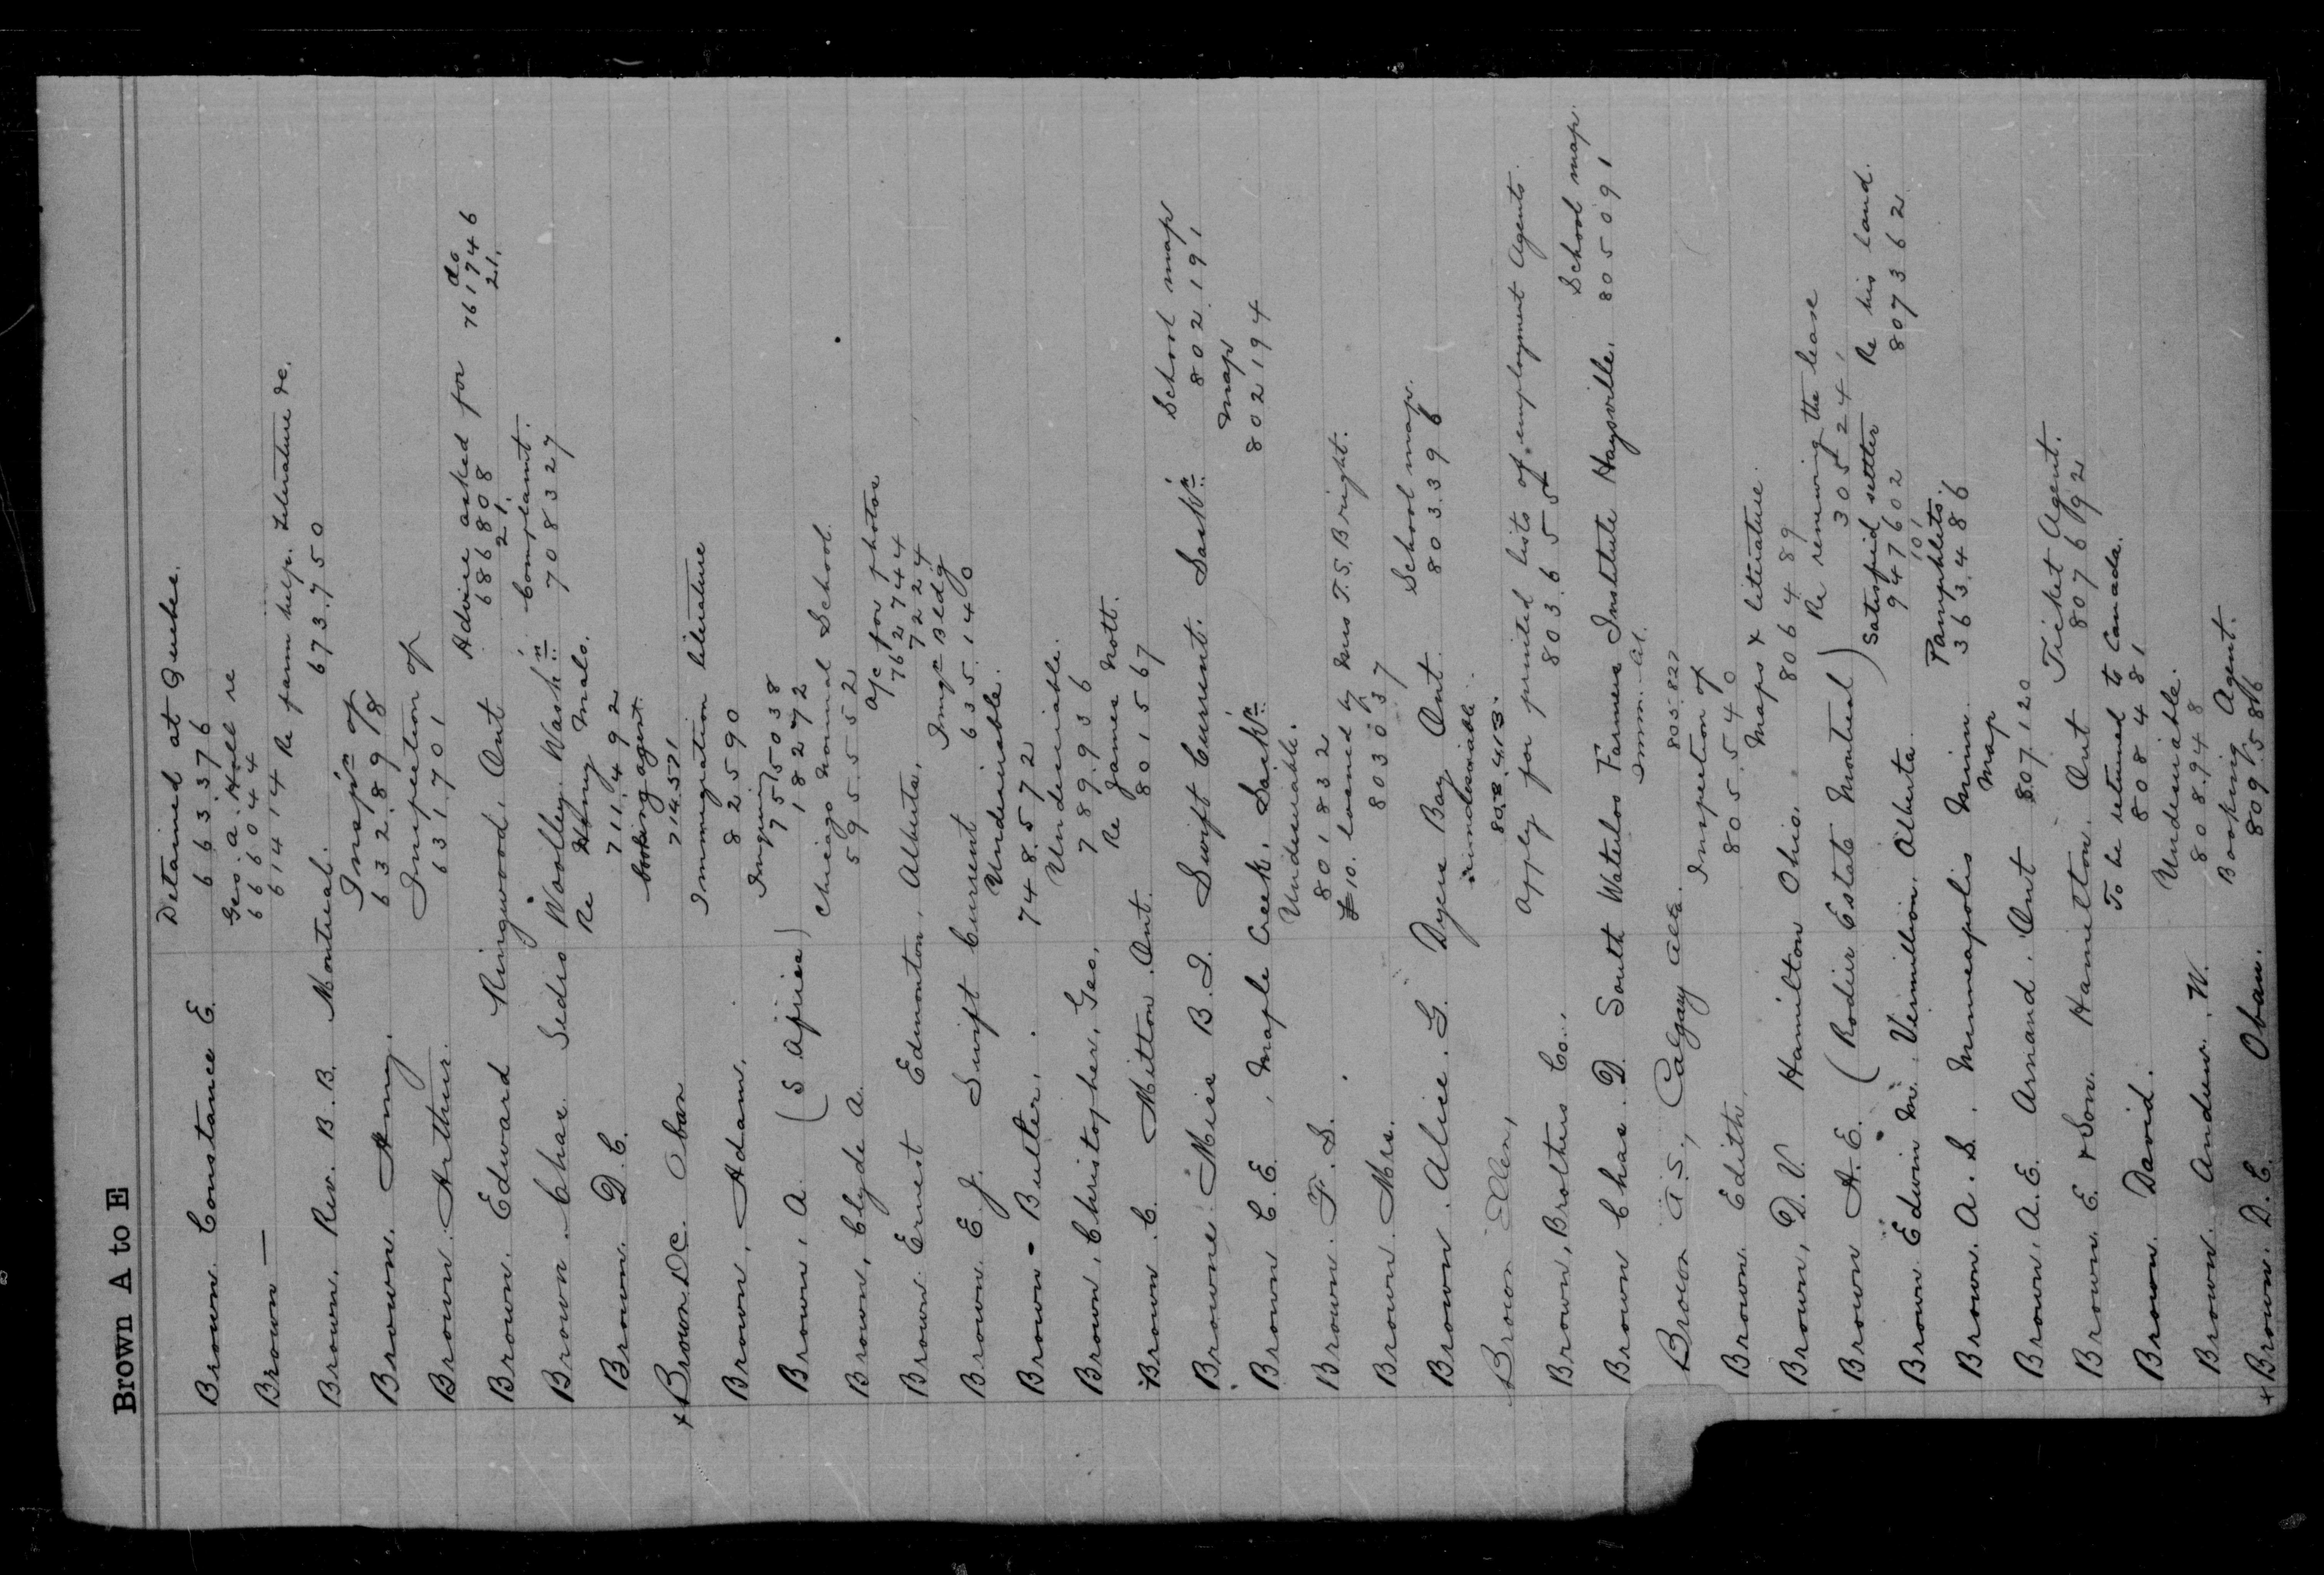 Brown A to E
Detained at Quebec.
Brown. Constance E. 663376
Geo. A. Holl re
666044
Brown — 61414
Re farm help. Literature &c.
Brown. Rev. B. B. Montreal. 673.750
Insp'n of
Brown. Amy. 632.8918
Inspection of
Brown. Arthur. 631701
Advice asked for do
Brown. Edward Ringwood. Ont 686808 761746
21. 21.
Complaint.
Brown. Chas. Sedro Woolley. Wash'n 708327
Re
Brown. D. C. 711.492
booking agent.
x Brown. DC. Oban 714.571
Immigration literature
Brown. Adam. 82590
Inquiry
755038
Brown, A. (S Africa) 18272
Chicago Normal School.
Brown, Clyde A. 595552
a/c for photos
762744
Brown. Ernest Edmonton. Alberta. 7224
Imm'gn Bldg
Brown. E. J. Swift Current 635.140
Undesirable.
Brown - Butler. 748.572
Undesirable.
Brown, Christopher, Geo. 789.936
Re James Nott.
Brown. C. Mitton. Ont. 801567
School map
Browne. Miss B. I. Swift Current. Sask'n 802.191
map
Brown C. E. Maple Creek, Sask'n. 802194
Undesirable.
Brown. F. S. 801832
£10. loaned by Mrs T. S. Bright.
Brown. Mrs. 803037
School map.
Brown. Alice. G. Dyers Bay Ont. 803.396
undesirable
Brown Ellen, 803.413.
Apply for printed lists of employment Agents.
Brown, Brothers Co. 803.655
School map.
Brown Chas. D. South Waterloo Farmers Institute Haysville. 805091
Imm. at.
Brown A. S., Calgary Alta. 805.822
Inspection of
Brown. Edith. 805.540
Maps & literature.
Brown, D. V. Hamilton Ohio. 806489
Re renewing the lease
Brown A. E. (Rodier Estate Montreal) 30524
Satisfied settler Re his land.
Brown. Edwin M. Vermillion. Alberta. 947602 807362
10.
Pamphlets.
Brown. A. S. Minneapolis Minn. 363.486
Map
Brown. A. E. Arnand. Ont 807120
Ticket Agent.
Brown. E. & Son. Hamilton. Ont 807692
To be returned to Canada.
Brown. David. 808481
Undesirable.
Brown. Andrew. W. 808.948
Booking Agent.
x Brown. D. C. Oban. 809586